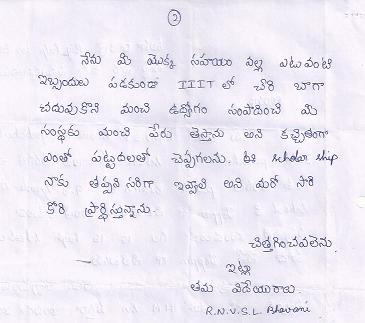 ②
నేను మీ యొక్క సహాయం వల్ల ఎటువంటి
ఇబ్బందులు పడకుండా IIIT లో చేరి బాగా
చదువుకొని మంచి ఉద్యోగం సంపాదించి మీ
సంస్థకు మంచి పేరు తెస్తాను అని కచ్చితంగా
ఎంతో పట్టుదలతో చెప్పగలను. ఈ scholar ship
నాకు తప్పని సరిగా ఇవ్వాలి అని మరో సారి
కోరి ప్రార్థిస్తున్నాను.
చిత్తగించవలెను.
ఇట్లు
తమ విధేయురాలు.
R.N.V.S.L. Bhavani